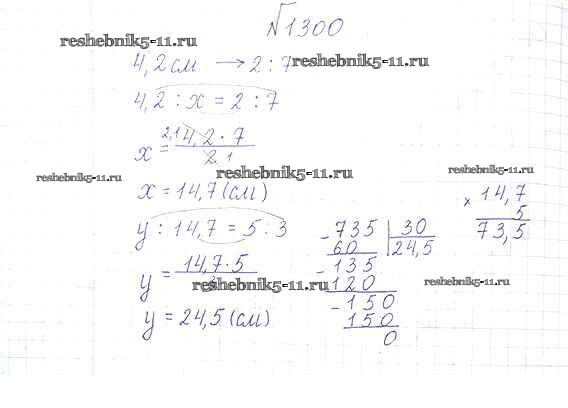 №1300
reshebnik5-11.ru
4,2см → 2 : 7
reshebnik5-11.ru
4,2 : x = 2 : 7
x = 2,1 4,2 · 7 / 2 1
reshebnik5-11.ru
reshebnik5-11.ru
reshebnik5-11.ru
x = 14,7 (см)
y : 14,7 = 5 : 3
y = 14,7 · 5 / 3
reshebnik5-11.ru
reshebnik5-11.ru
y = 24,5 (см)
- 735 | 30
60 24,5
- 135
120
- 150
150
0
× 14,7
5
73,5